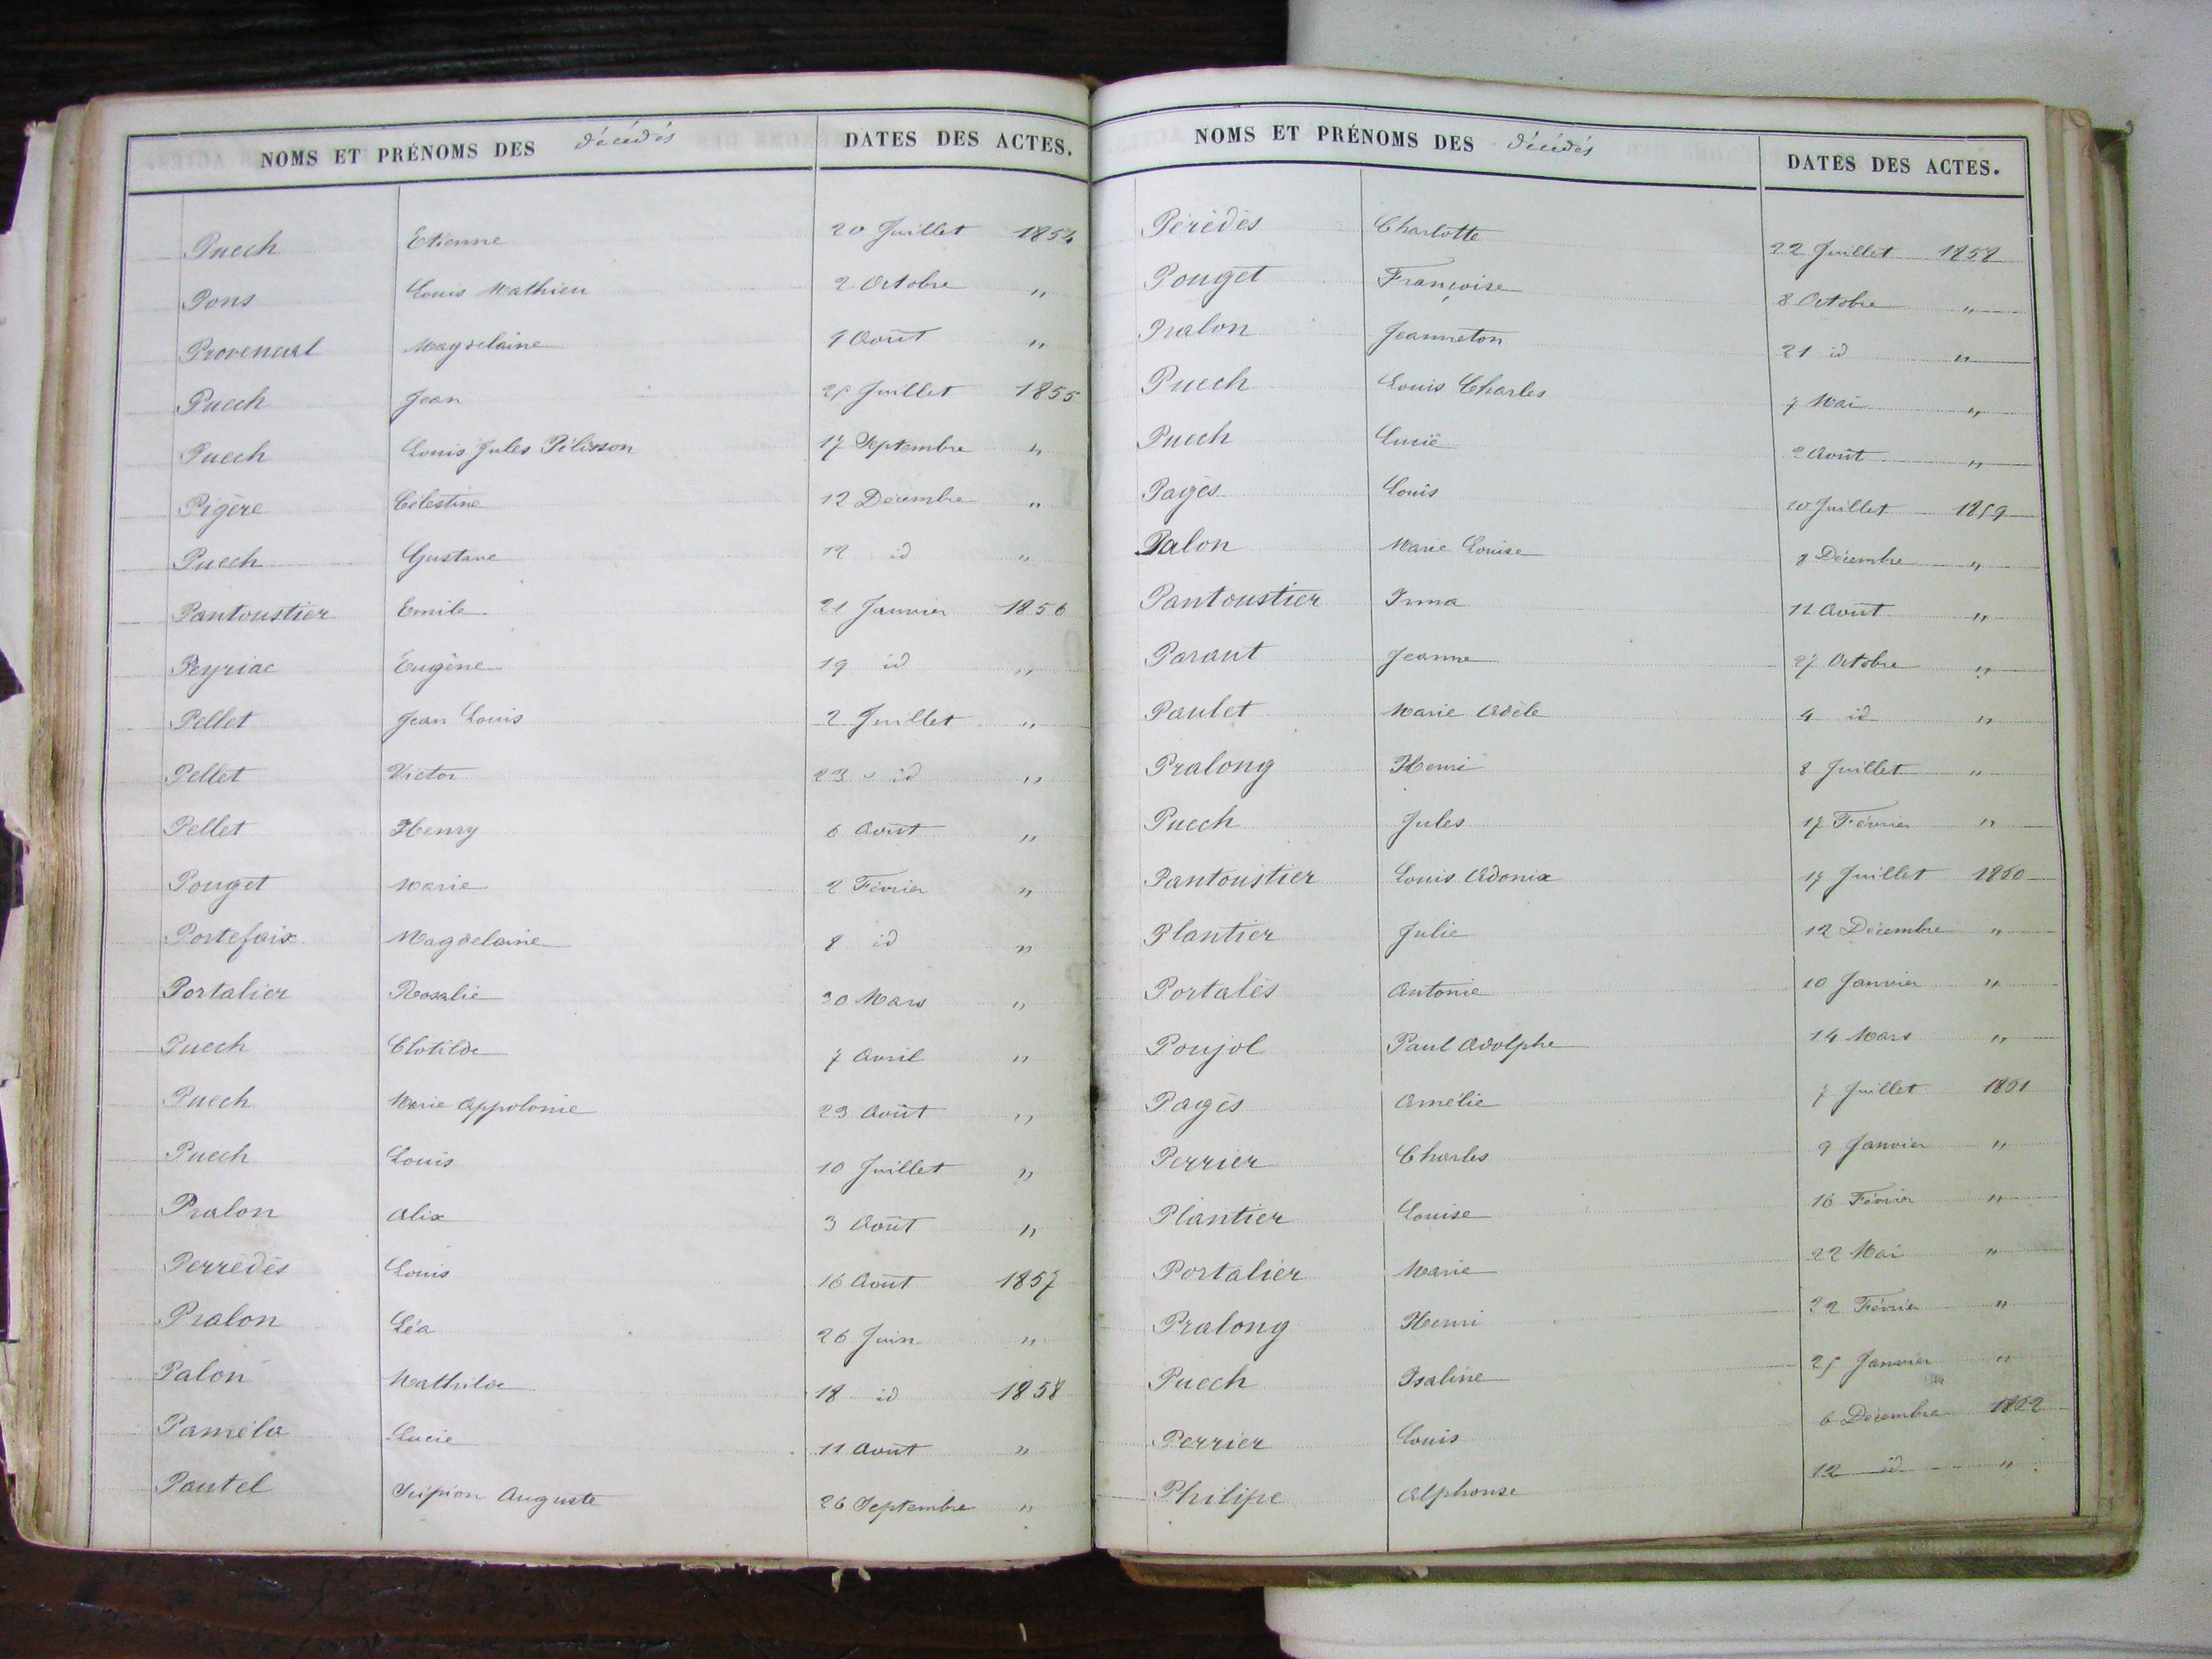 NOMS ET PRÉNOMS DES décédés DATES DES ACTES.
Puech Etienne 20 Juillet 1854
Pons Louis Mathieu 2 Octobre "
Provencal Magdelaine 9 Août "
Puech Jean 25 Juillet 1855
Puech Louis Jules Pélisson 17 Septembre "
Pigère Célestine 12 Décembre "
Puech Gustave 12 id "
Pantoustier Emile 21 Janvier 1856
Peyriac Eugène 19 id "
Pellet Jean Louis 2 Juillet "
Pellet Victor 23 id "
Pellet Henry 6 Août "
Pouget Marie 2 Février "
Portefaix Magdelaine 8 id "
Portalier Rosalie 30 Mars "
Puech Clotilde 7 Avril "
Puech Marie Appolonie 23 Août "
Puech Louis 10 Juillet "
Pralon Alix 3 Août "
Perrédès Louis 16 Août 1857
Pralon Léa 26 Juin "
Palon Mathilde 18 id 1858
Paméla Lucie 11 Août "
Pautel Scipion Auguste 26 Septembre "
NOMS ET PRÉNOMS DES décédés DATES DES ACTES.
Pérédès Charlotte 22 Juillet 1858
Pouget Françoise 8 Octobre "
Pralon Jeanneton 21 id "
Puech Louis Charles 7 Mai "
Puech Lucie 2 Août "
Pagès Louis 10 Juillet 1859
Palon Marie Louise 8 Décembre "
Pantoustier Irma 11 Août "
Paraut Jeanne 27 Octobre "
Paulet Marie Adèle 4 id "
Pralong Henri 8 Juillet "
Puech Jules 17 Février "
Pantoustier Louis Adonix 17 Juillet 1860
Plantier Julie 12 Décembre "
Portalès Antonie 10 Janvier "
Poujol Paul Adolphe 14 Mars "
Pagès Amélie 7 Juillet 1861
Perrier Charles 9 Janvier "
Plantier Louise 16 Février "
Portalier Marie 22 Mai "
Pralong Henri 22 Février "
Puech Isaline 25 Janvier "
Perrier Louis 6 Décembre 1862
Philipe Alphonse 12 id "